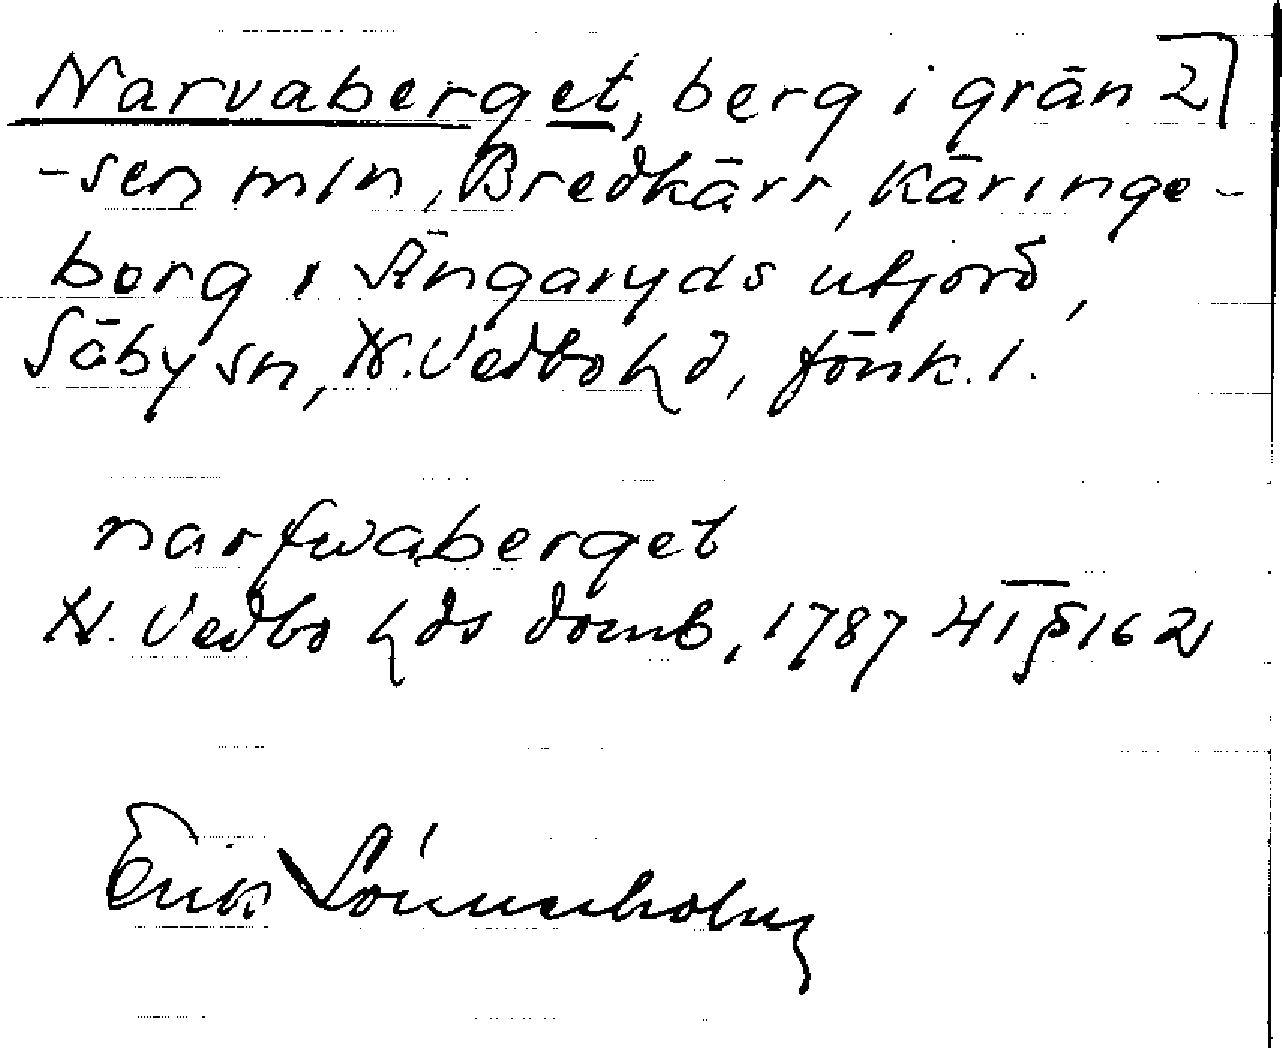 Narvaberget, berg i grän 2
-sen mln, Bredkärr, Käringe-
borg i Ängaryds utjord,
Säby sn, N. Vedbo hd, Jönk. l.
narfwaberget
N. Vedbo hds domb, 1787 HT § 162
Erik Lönnerholm